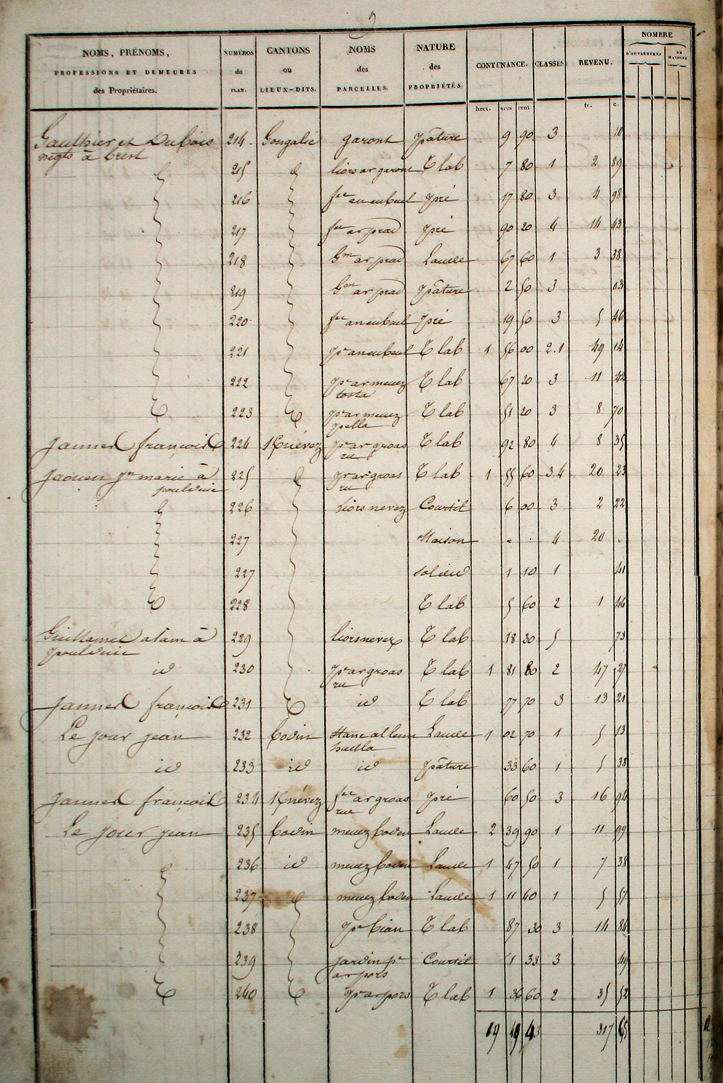 9
NOMS, PRÉNOMS, PROFESSIONS ET DEMEURES des Propriétaires. NUMÉROS du PLAN. CANTONS ou LIEUX-DITS. NOMS des PARCELLES. NATURE des PROPRIÉTÉS. CONTENANCE. CLASSES REVENU. NOMBRE D'OUVERTURES DE MAISONS
hect. ares cent. fr. c.
Gauthier et Dubois 214 Gongalic garont pâture 9 90 3 10
négts à brest
215 liors ar garont T lab 7 80 1 2 89
216 pré 17 80 3 4 98
217 ar prad pré 90 20 4 14 43
218 ar prad Lande 67 60 1 3 38
219 ar prad pâture 2 50 3 03
220 pré 19 50 3 5 46
221 T lab 1 56 00 2.1 49 14
222 pr ar menez T lab 67 20 3 11 42
tosta
223 pr ar menez T lab 51 20 3 8 70
pella
Jannel françois 224 Knévez pr ar groas T lab 92 80 4 8 35
ru
Jaouen marie à 225 pr ar groas T lab 1 55 60 3.4 20 23
poulduic ru
226 liors nevez Courtil 6 00 3 2 22
227 Maison 4 20
227 sol id 1 10 1 41
228 T lab 5 60 2 1 46
à 229 liors nevez T lab 18 30 5 73
poulduic
id 230 pr ar groas T lab 1 81 80 2 47 27
ru
Jannel françois 231 id T lab 77 70 3 13 21
Le jour jean 232 Codin Lande 1 02 70 1 5 13
huella
id 233 id id pâture 33 60 1 5 38
Jannel françois 234 Knévez ar groas pré 60 50 3 16 94
rue
Le jour jean 235 Codin menez Codin Lande 2 39 90 1 11 99
236 id menez Codin Lande 1 47 50 1 7 38
237 menez Codin Lande 1 11 40 1 5 57
238 pr bian T lab 87 30 3 14 86
239 jardin pr Courtil 1 33 3 49
ar pors
240 pr ar pors T lab 1 36 60 2 35 52
19 19 43 317 65